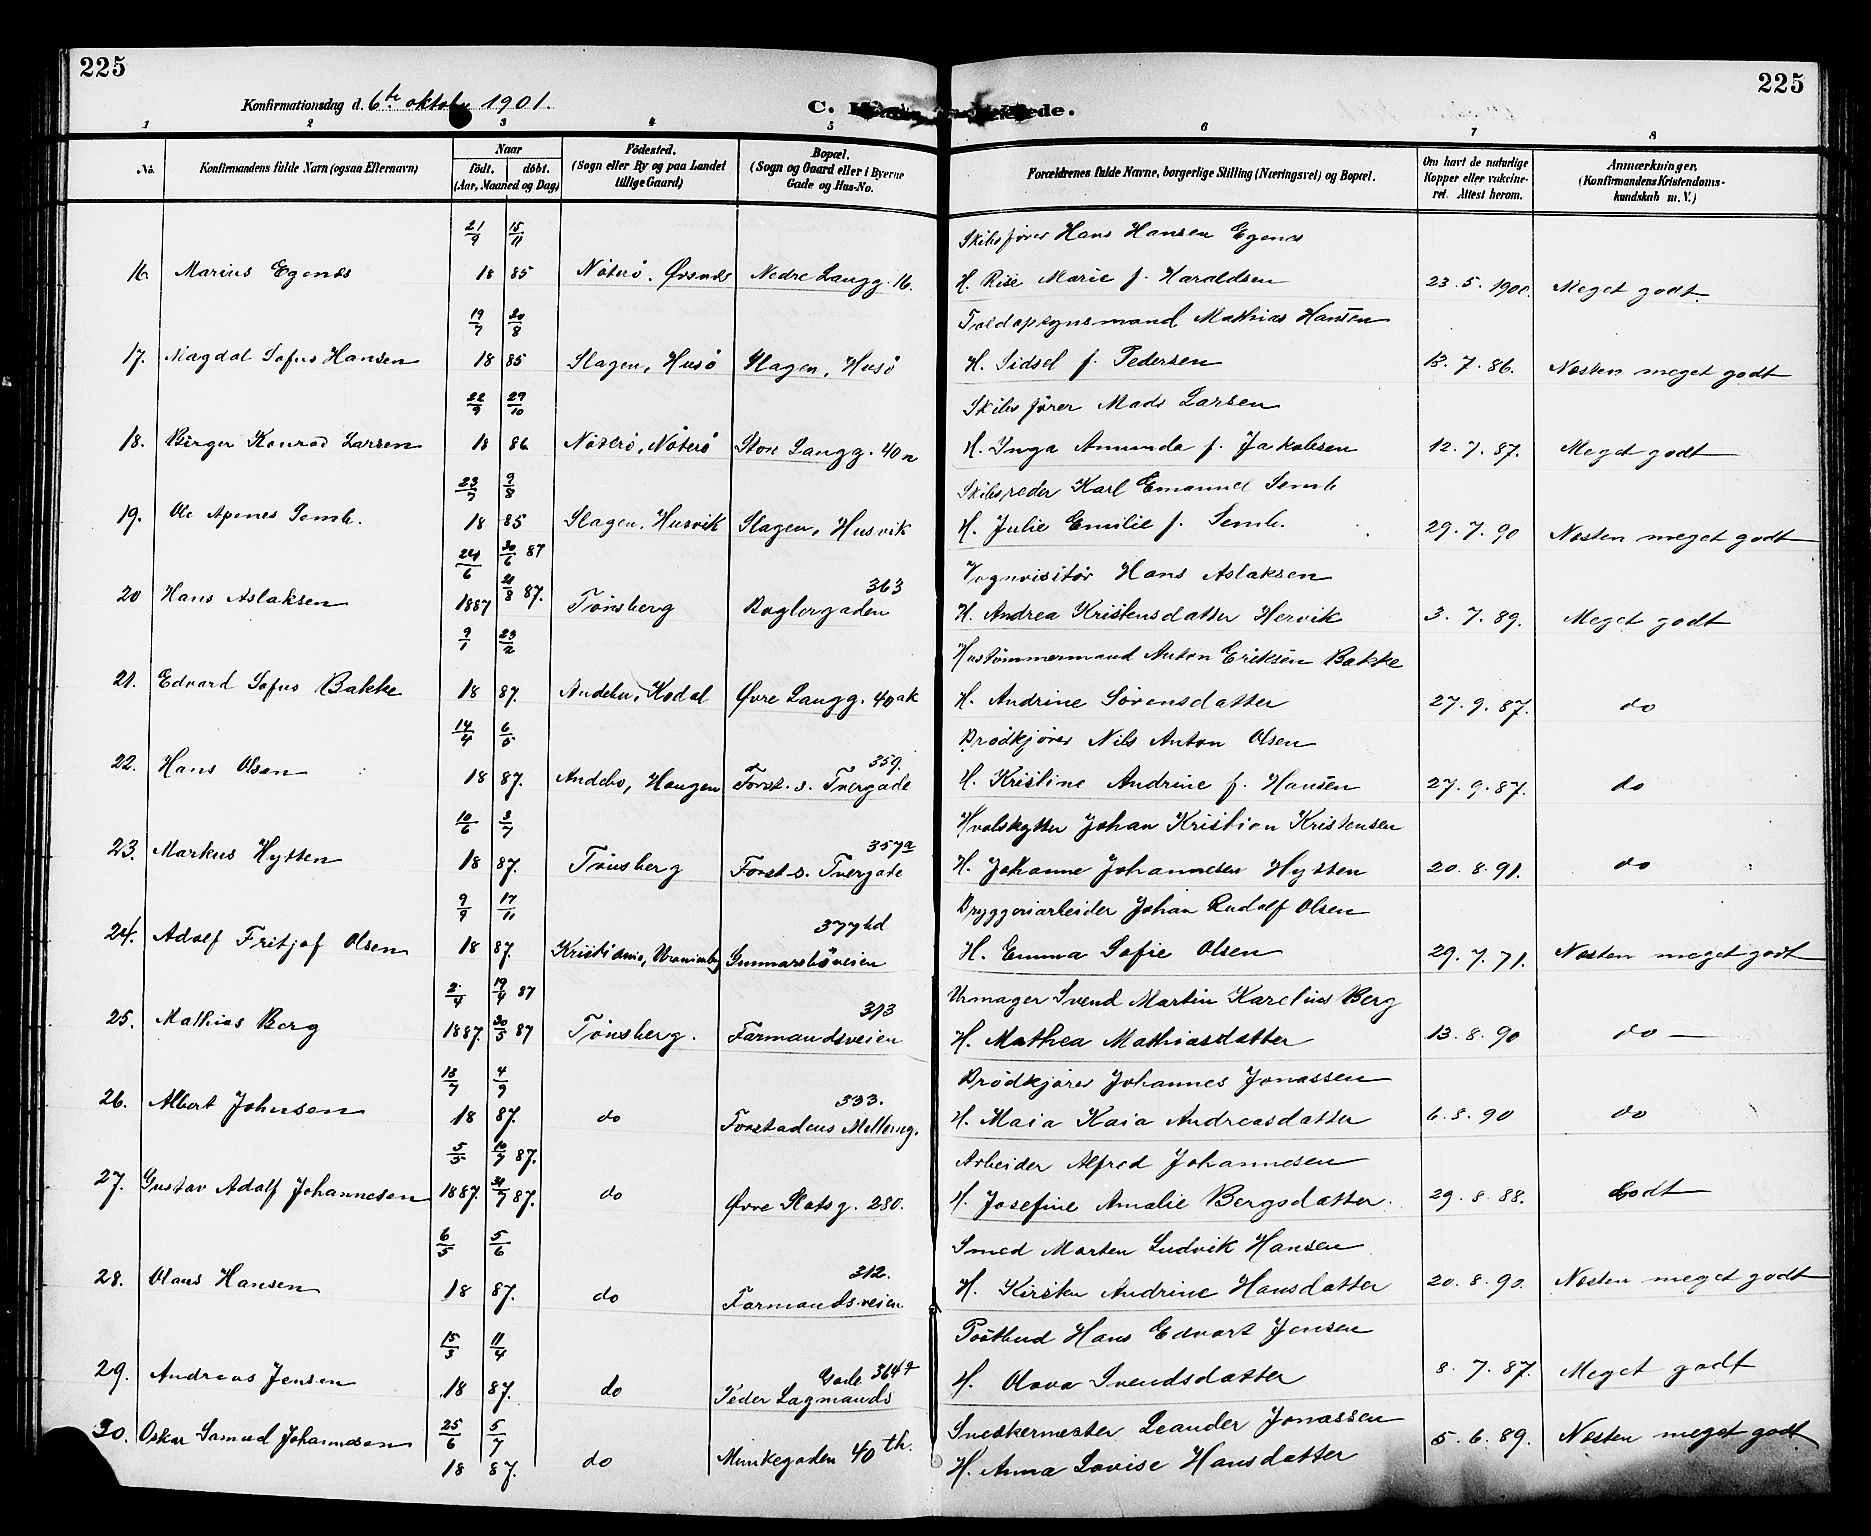 225
225
Konfirmationsdag d. 6te oktober 1901.
C.
1 2 3 4 5 6 7 8
No.
Konfirmandens fulde Navn (ogsaa Efternavn)
Naar
født. døbt.
(Aar, Maaned og Dag)
Fødested.
(Sogn eller By og paa Landet
tillige Gaard)
Bopæl.
(Sogn og Gaard eller i Byerne
Gade og Hus-No.
Forældrenes fulde Navne, borgerlige Stilling (Næringsvei) og Bopæl.
Om havt de naturlige
Kopper eller vakcine-
ret. Attest herom.
Anmærkninger.
(Konfirmandens Kristendoms-
kundskab m. V.)
21/9 15/11 Skibsfører Hans Hansen Egenes
16. Marius Egenes 18 85 Nøterø. Nedre Langg. 16. H. Rise Marie f. Haraldsen 23.5.1900. Meget godt
19/7 30/8 Toldopsynsmand Mathias Hansen
17. Magdal Sofus Hansen 18 85 Slagen, Husø Slagen, Husø H. Sidsel f. Pedersen 13.7.86. Næsten meget godt
22/9 29/10 Skibsfører Mads Larsen
18. Birger Konrad Larsen 18 86 Nøterø, Nøterø Store Langg. 40 n H. Inga Amunda f. Jakobsen 12.7.87. Meget godt
23/7 9/8 Skibsreder Karl Emanuel Semb
19. Ole Apenes Semb. 18 85 Slagen, Husvik Slagen, Husvik H. Julie Emilie f. Semb. 29.7.90 Næsten meget godt
24/6 30/6 87 Vognvisitør Hans Aslaksen
21/8 87. 363
20 Hans Aslaksen 1887 Tønsberg Baglergaden H. Andrea Kristensdatter Hervik 3.7.89. Meget godt
9/1 23/2 Hustømmermand Anton Eriksen Bakke
21. Edvard Sofus Bakke 18 87. Andebu, Kodal Øvre Langg. 40 ak H. Andrine Sørensdatter 27.9.87. do
14/4 6/5 Brødkjører Nils Anton Olsen
359.
22. Hans Olsen 18 87. Andebu, Haugen Forst. s. Tvergade H. Kristine Andrine f. Hansen 27.9.87. do
10/6 3/7 Hvalskytter Johan Kristian Kristensen
357a
23. Markus Hytten 18 87. Tønsberg Forst. s. Tvergade H. Johanne Johannesen Hytten 20.8.91. do
9/9 17/11 Bryggeriarbeider Johan Rudolf Olsen
377 bd
24. Adolf Fritjof Olsen 18 87. Kristiania, Uranienborg Gunnarsbøveien H. Emma Sofie Olsen 29.7.71. Næsten meget godt
2/4 19/4 87 Urmager Svend Martin Karelius Berg
313
25. Mathias Berg 1887. 30/5 87 Tønsberg. Farmandsveien H. Mathea Mathiasdatter 13.8.90 do
13/7 4/9 Brødkjører Johannes Jonassen
333.
26. Albert Johnsen 18 87. do Forstadens Mellemg. H. Maia Kaia Andreasdatter 6.8.90 do
5/5 10/7 87. Arbeider Alfred Johannesen
27. Gustav Adolf Johannesen 1887. 31/7 87. do Øvre Slotsg. 280. H. Josefine Amalie Bergsdatter. 29.8.88. Godt
6/5 5/6 Smed Morten Ludvik Hansen
312.
28. Olaus Hansen 18 87. do Farmandsveien H. Kirsten Andrine Hansdatter 20.8.90. Næsten meget godt
15/3 11/4 Postbud Hans Edvart Jensen
Gade 364
29. Andreas Jensen 18 87. do Peder Lagmands H. Olava Svendsdatter 8.7.87. Meget godt
25/6 5/7 Snedkermester Leander Jonassen
30. Oskar Samuel Johannesen 18 87. do Munkegaden 40 th. H. Anna Lovise Hansdatter 5.6.89. Næsten meget godt